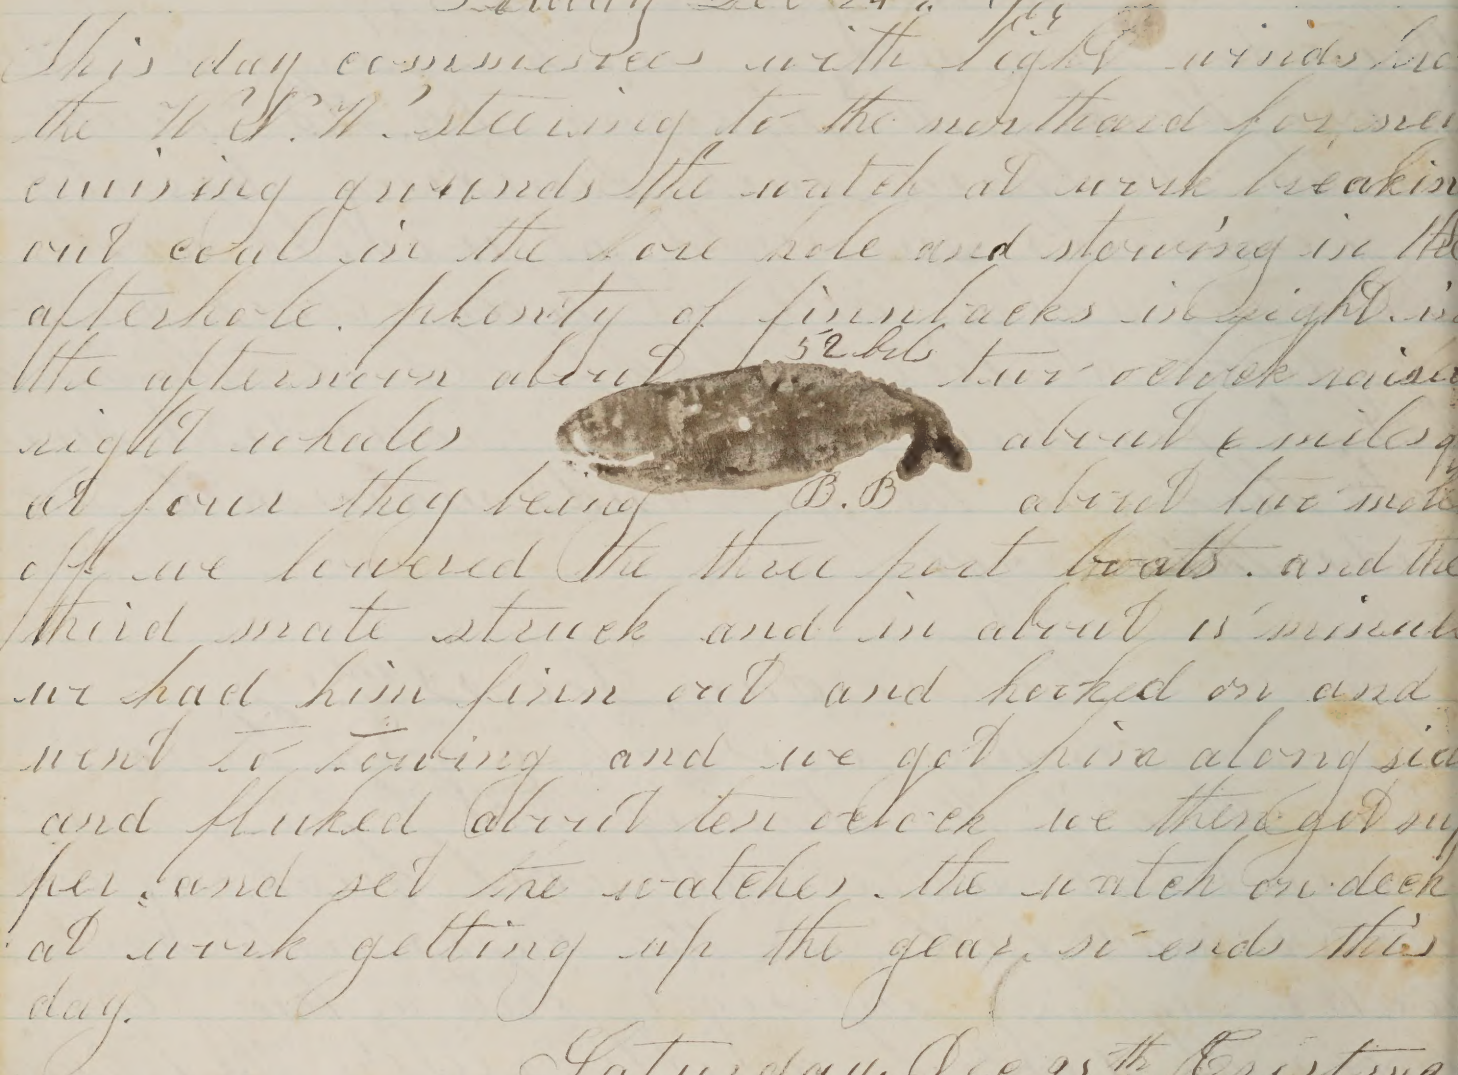 This day commences with light winds
the W.S.W. steering to the northard for new
cruising grounds the watch at work breakin
out coal in the fore hole and stowing in the
afterhole. plenty of finnbacks in sight. in
52 bls
the afternoon about two oclock raised
right whales about 6 miles
at four they being about two
B.B
off we lowered the three port boats. and the
third mate struck and in about 15 minut
we had him finn out and hooked on and
went to towing and we got him along sid
and fluked about ten oclock we then got sup
per. and set the watches. the watch on deck
at work getting up the gear. so ends this
day.
Saturday, Dec 25th